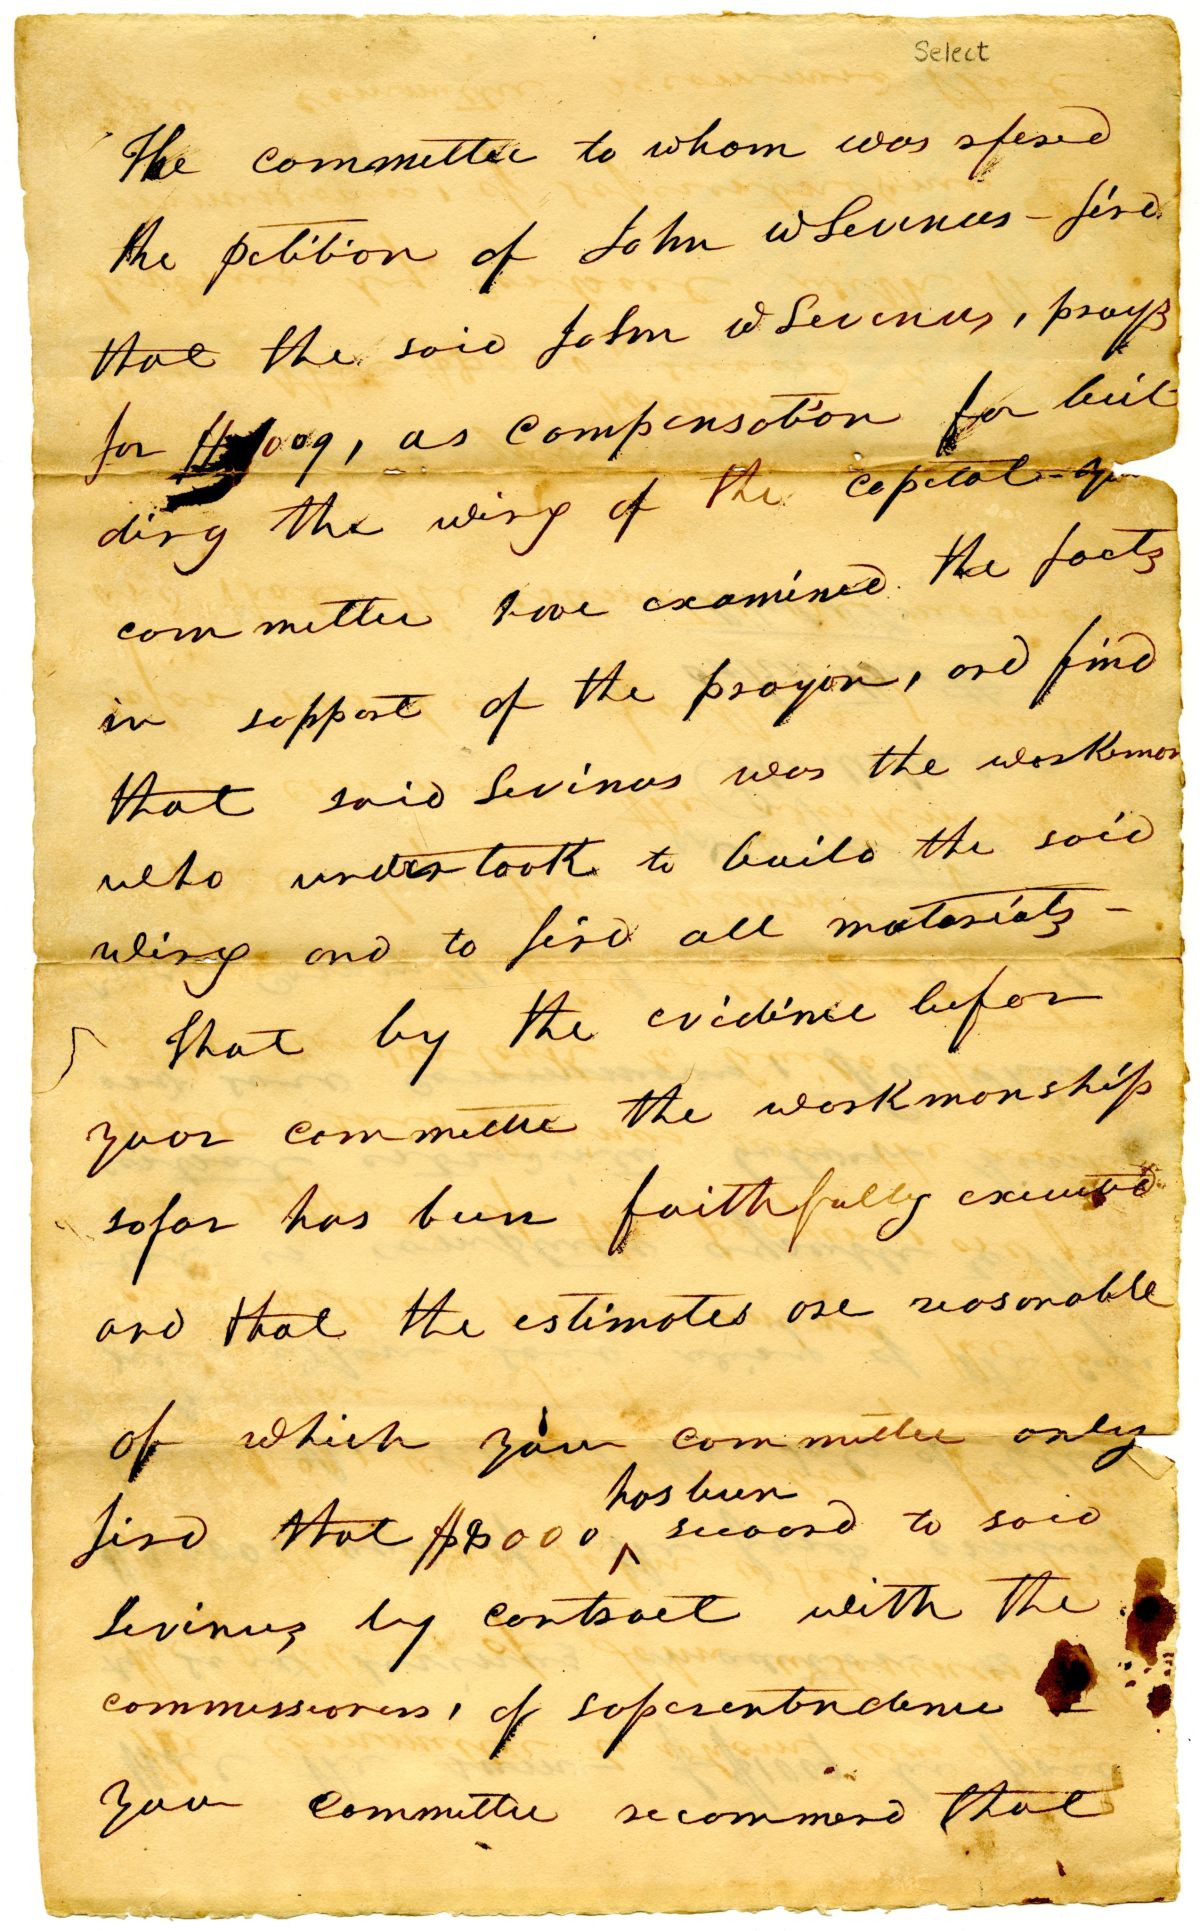 Select
The committee to whom was refered
the petition of John W Levinus - find
that the said John W Levinus, prays
for $ 009, as compensation for buil
ding the wing of the capital - your
committee have examined the facts
in support of the prayor, and find
that said Levinus was the workman
who undertook to build the said
wing and to find all materials -
That by the evidince befor
your committee the workmanship
sofar has been faithfully executed
and that the estimates are reasonable
of which your committee only
find that $8000 secoord to said
has been
Levinus by contract with the
commissioners, of soperentendence
your committee recommend that